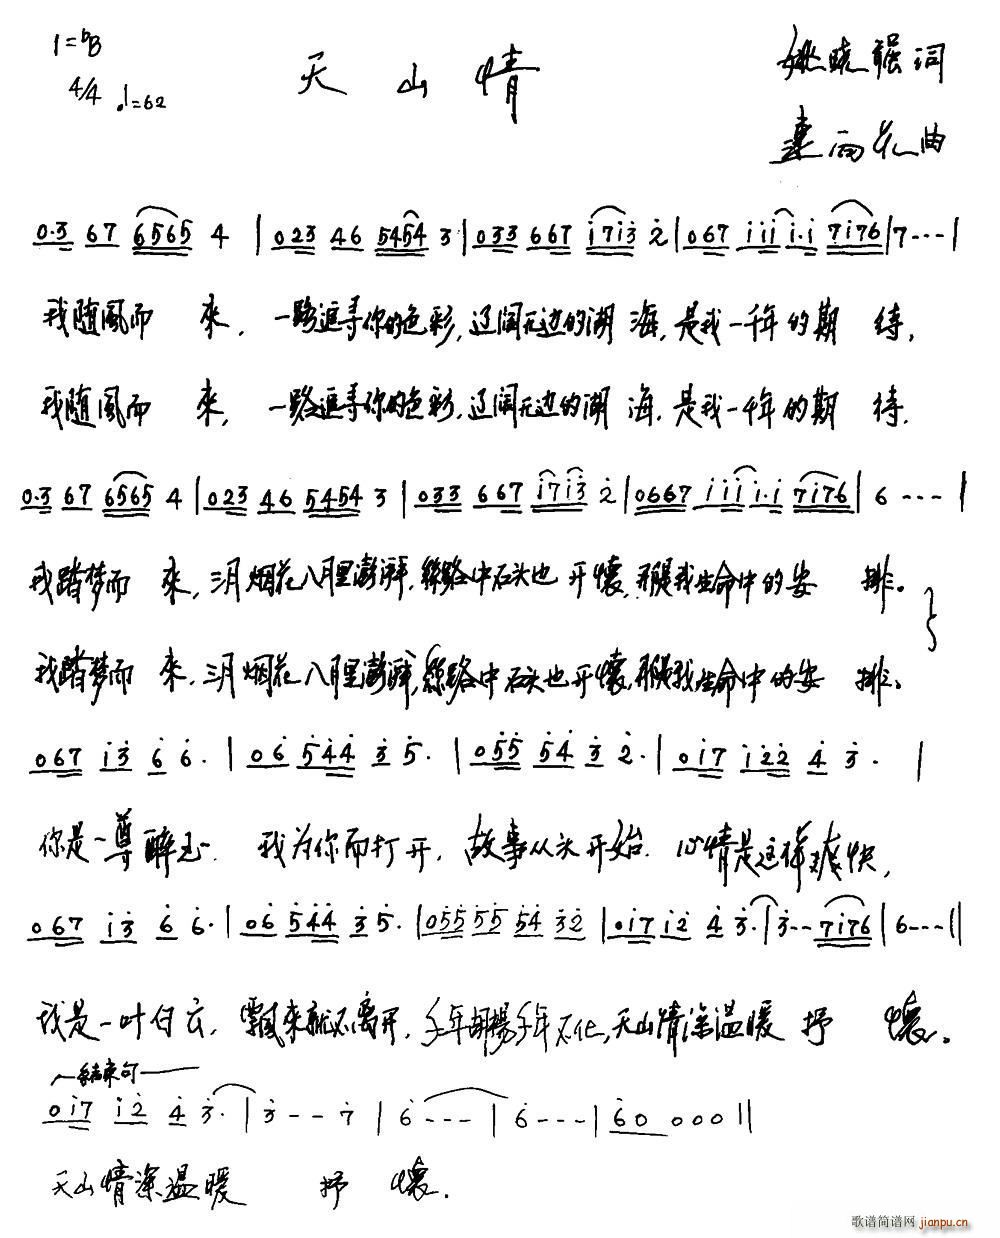 1=♭B
天山情
姚晓强词
4/4 ♩=62
雨花曲
0·3 67 6565 4 | 023 46 5454 3 | 033 667 i7i3 2 | 067 iii i·i 7i76 | 7--- |
我随風而 來，一路追寻你的色彩，辽阔无边的湖 海，是我一千年的期 待，
我随風而 來，一路追寻你的色彩，辽阔无边的湖 海，是我一千年的期 待，
0·3 67 6565 4 | 023 46 5454 3 | 033 667 i7i3 2 | 0667 iii i·i 7i76 | 6 --- |
我踏梦而 來，三月烟花八月里澎湃，絲路中石头也 开懷，那是我生命中的安 排。
我踏梦而 來，三月烟花八月里澎湃，絲路中石头也开懷，那是我生命中的安 排。
067 i3 6 6· | 06 544 3 5· | 055 54 3 2· | 0i7 i22 4 3· |
你是一尊醉玉，我为你而打开，故事从头开始，心情是这样爽快，
067 i3 6 6· | 06 544 3 5· | 055 55 54 32 | 0i7 i2 4 3· | 3-- 7i76 | 6--- ||
我是一叶白云，飘来就不离开，千年胡楊千年不化，天山情深温暖 抒 懷。
结束句
0i7 i2 4 3· | 3 -- 7 | 6 --- | 6 --- | 60 000 ||
天山情深温暖 抒 懷.
歌谱简谱网 jianpu.cn